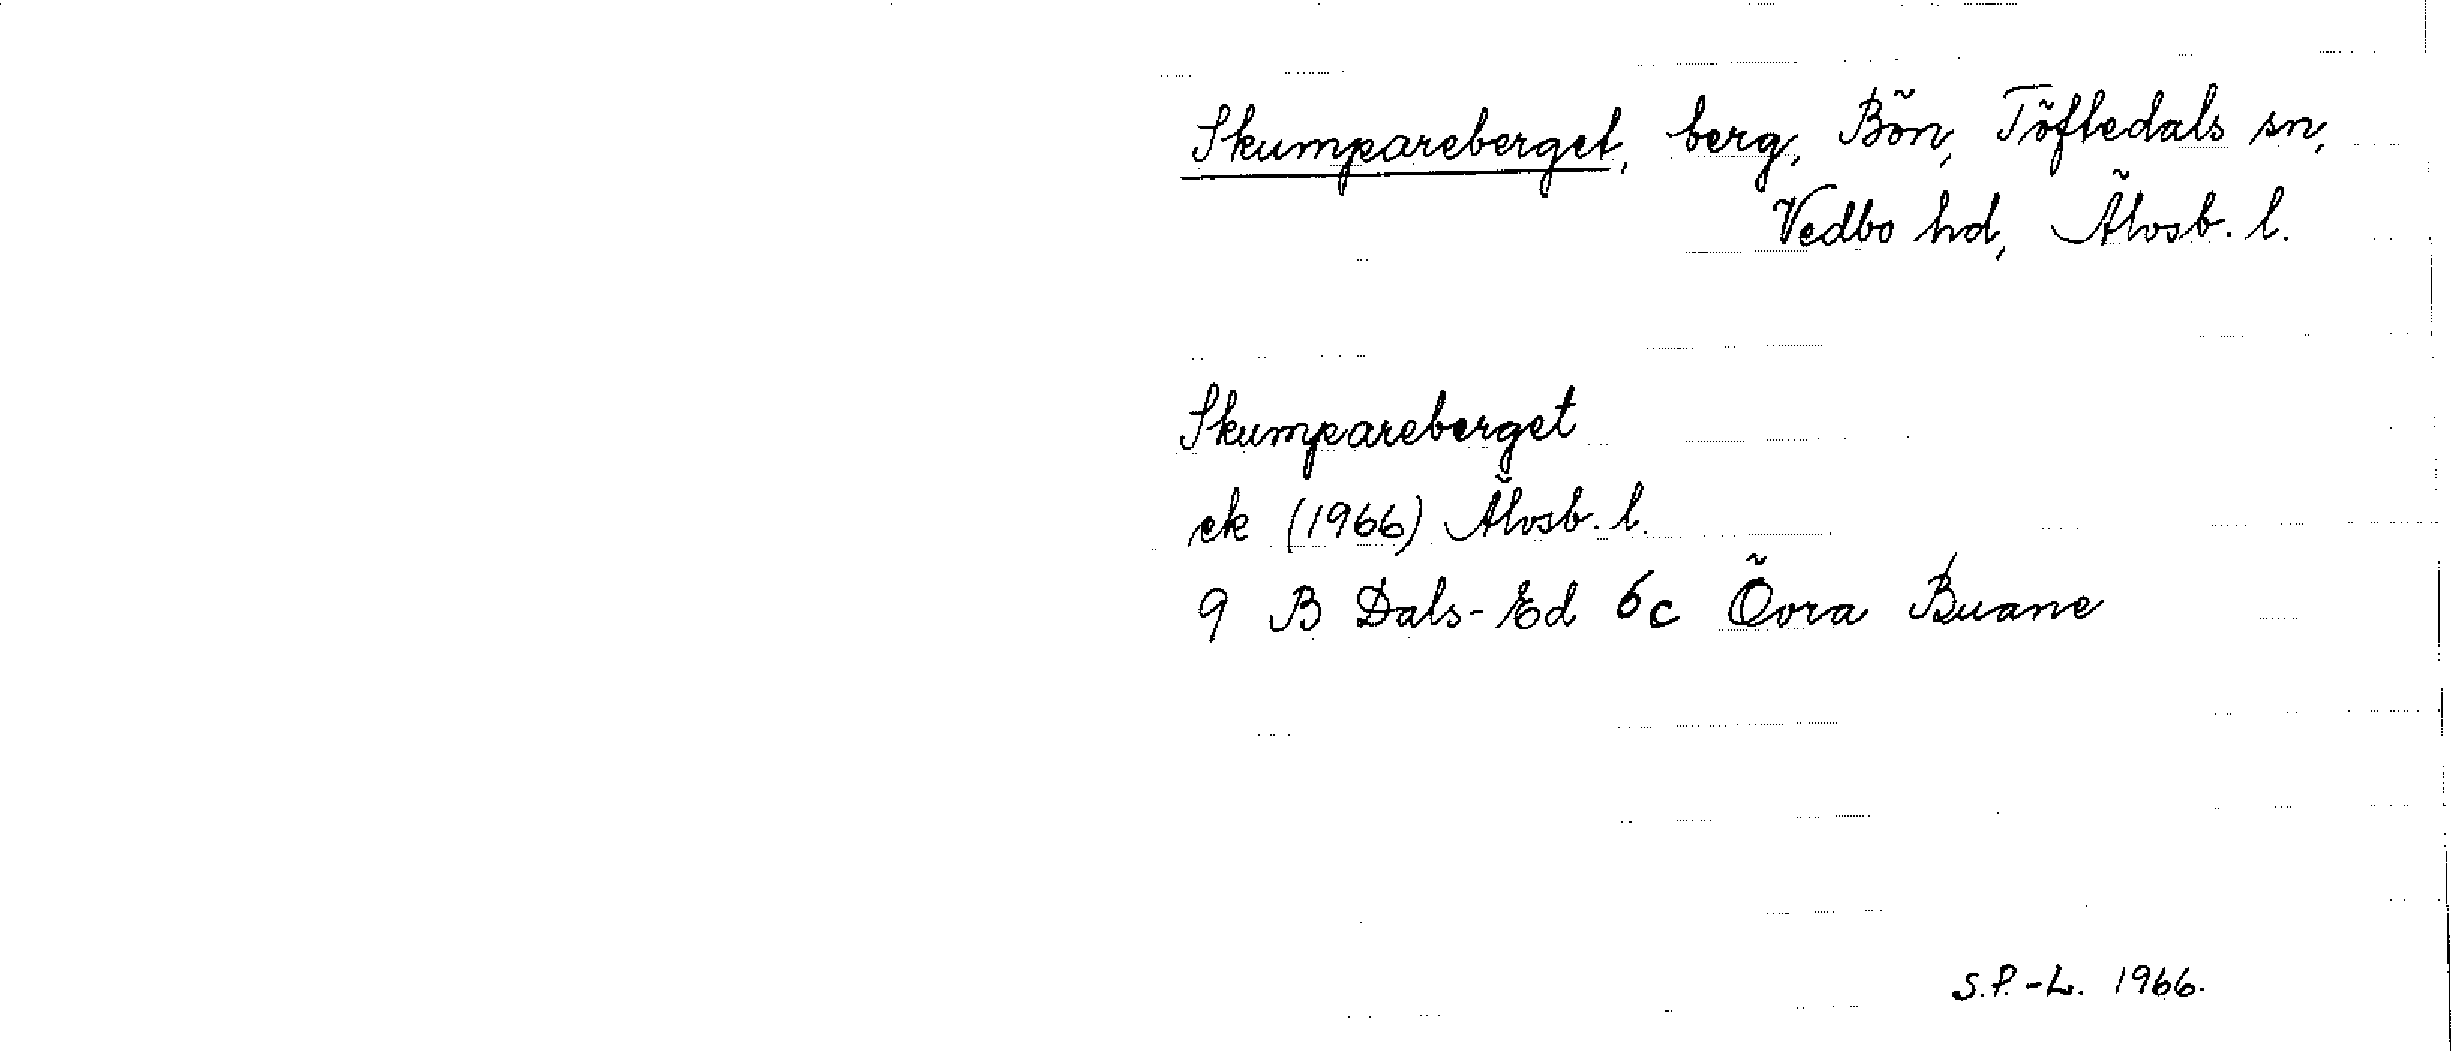 Skumpareberget, berg, Bön, Töftedals sn,
Vedbo hd, Älvsb. l.
Skumpareberget
ek (1966) Älvsb. l.
9 B Dals-Ed 6c Övra Buane
S.P.-L. 1966.